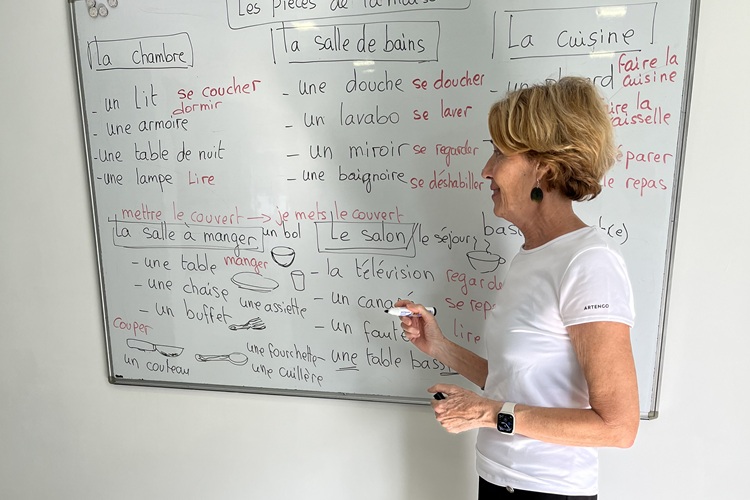 Les pièces de la maison
La chambre
un lit se coucher
dormir
une armoire
une table de nuit
une lampe Lire
La salle de bains
une douche se doucher
un lavabo se laver
un miroir se regarder
une baignoire se déshabiller
La cuisine
faire la
cuisine
la
le repas
mettre le couvert → je mets le couvert
La salle à manger
un bol
une table manger
une chaise
une assiette
un buffet
couper
un couteau
une fourchette
une cuillère
Le salon/le séjour
la télévision
un
un
lire
une table
(e)
ARTENGO